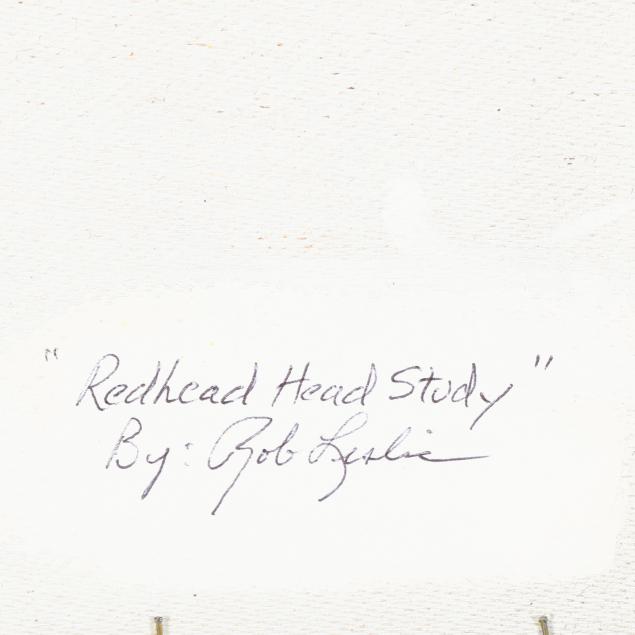 "Redhead Head Study"
By: Rob Leslie